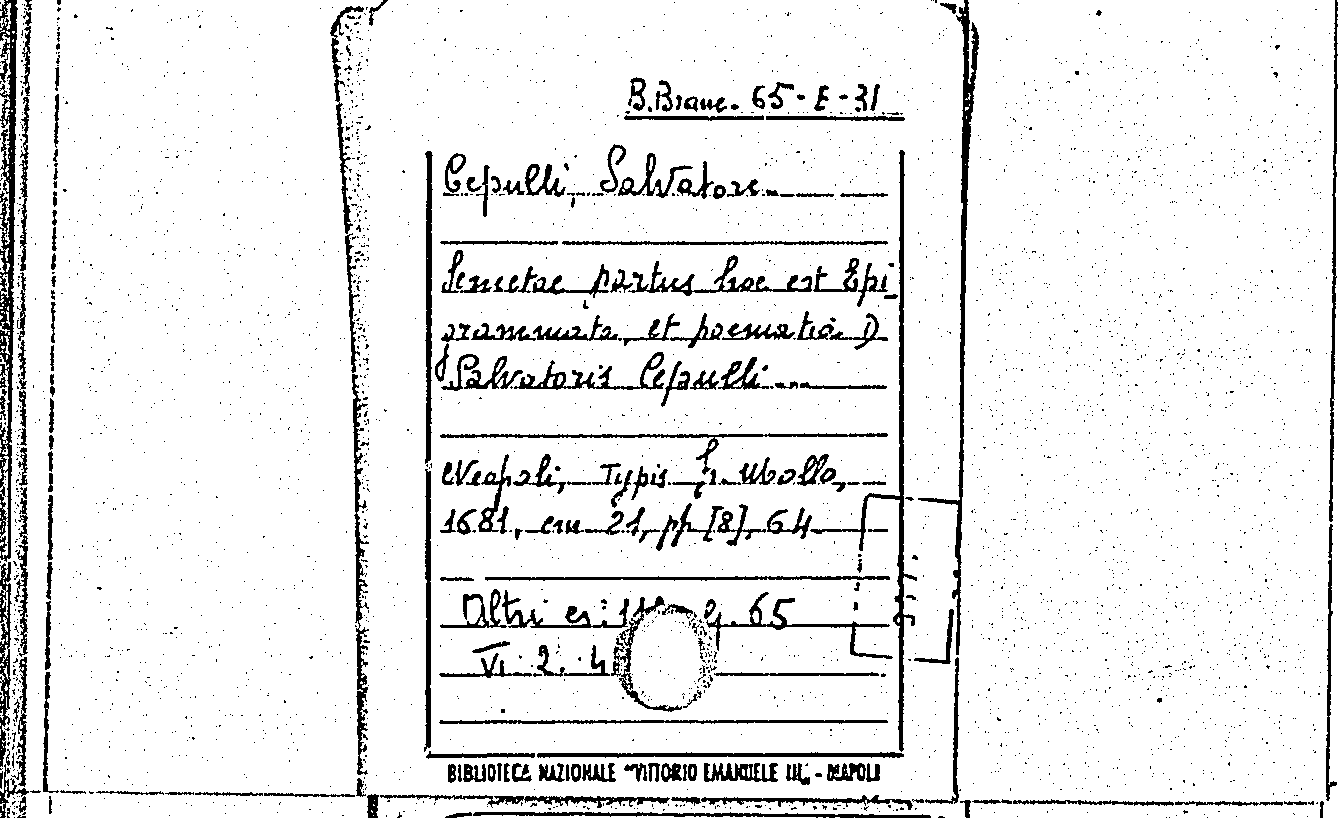 B.Branc. 65-E-31
Cepulli, Salvatore
Senectae partus hoc est Epi
grammata, et poematia D
Salvatoris Cepulli...
Neapoli, Typis
1681, cm 21, pp [8], 64
Altri es: 65
VI. 2. 4
BIBLIOTECA NAZIONALE "VITTORIO EMANUELE III" - NAPOLI